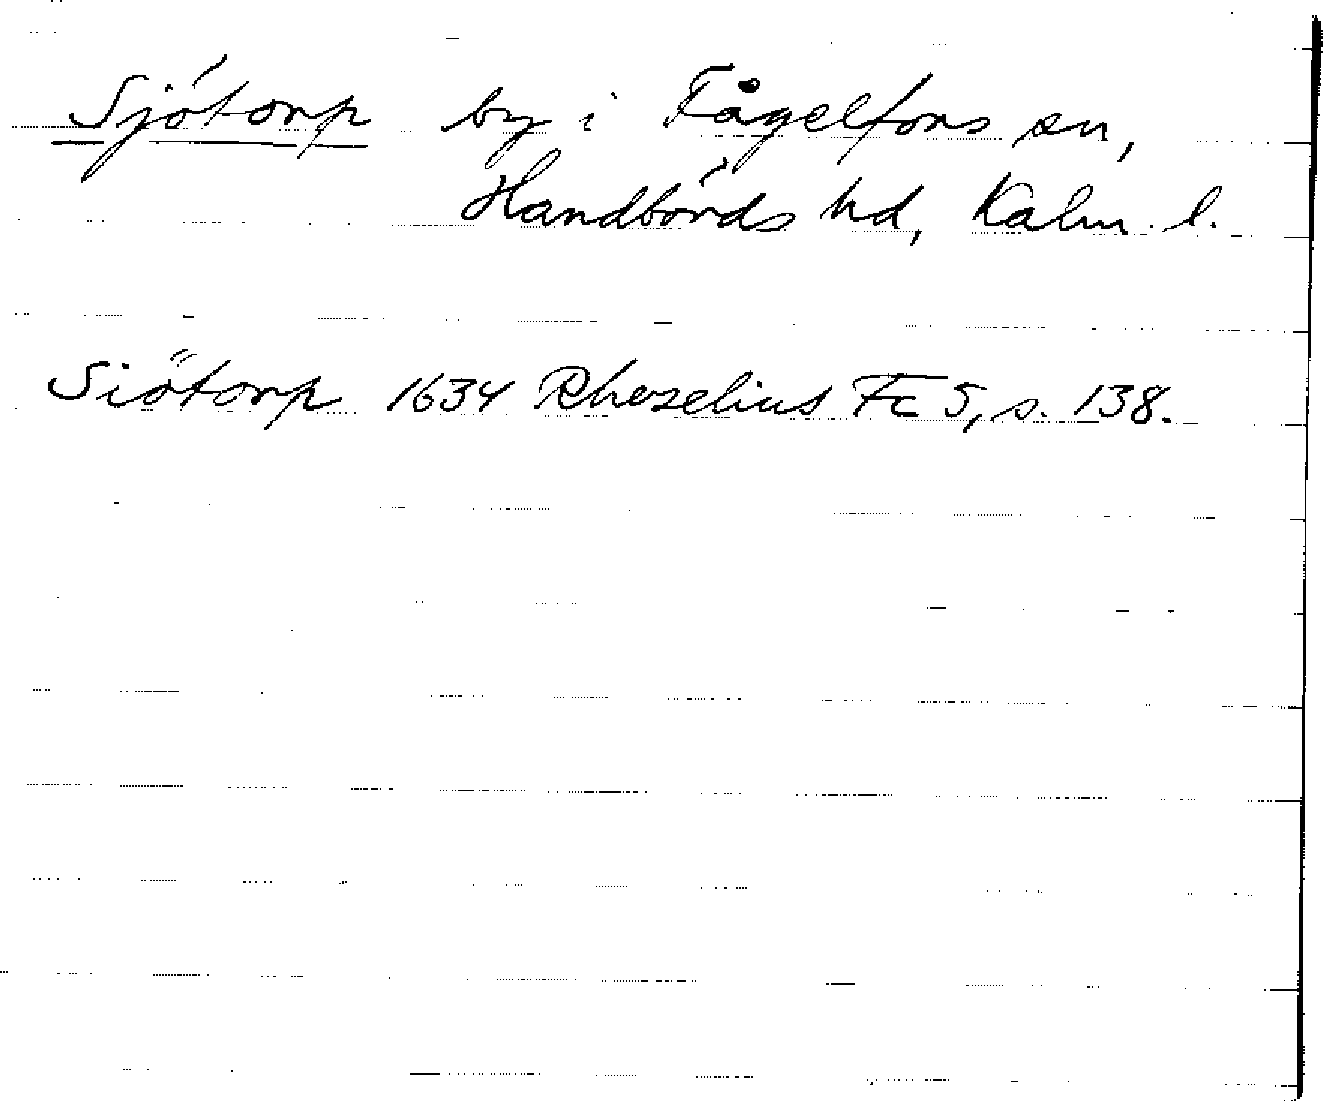 Sjötorp by i Fågelfors sn,
Handbörds hd, Kalm. l.
Siötorp 1634 Rhezelius Fc 5, s. 138.